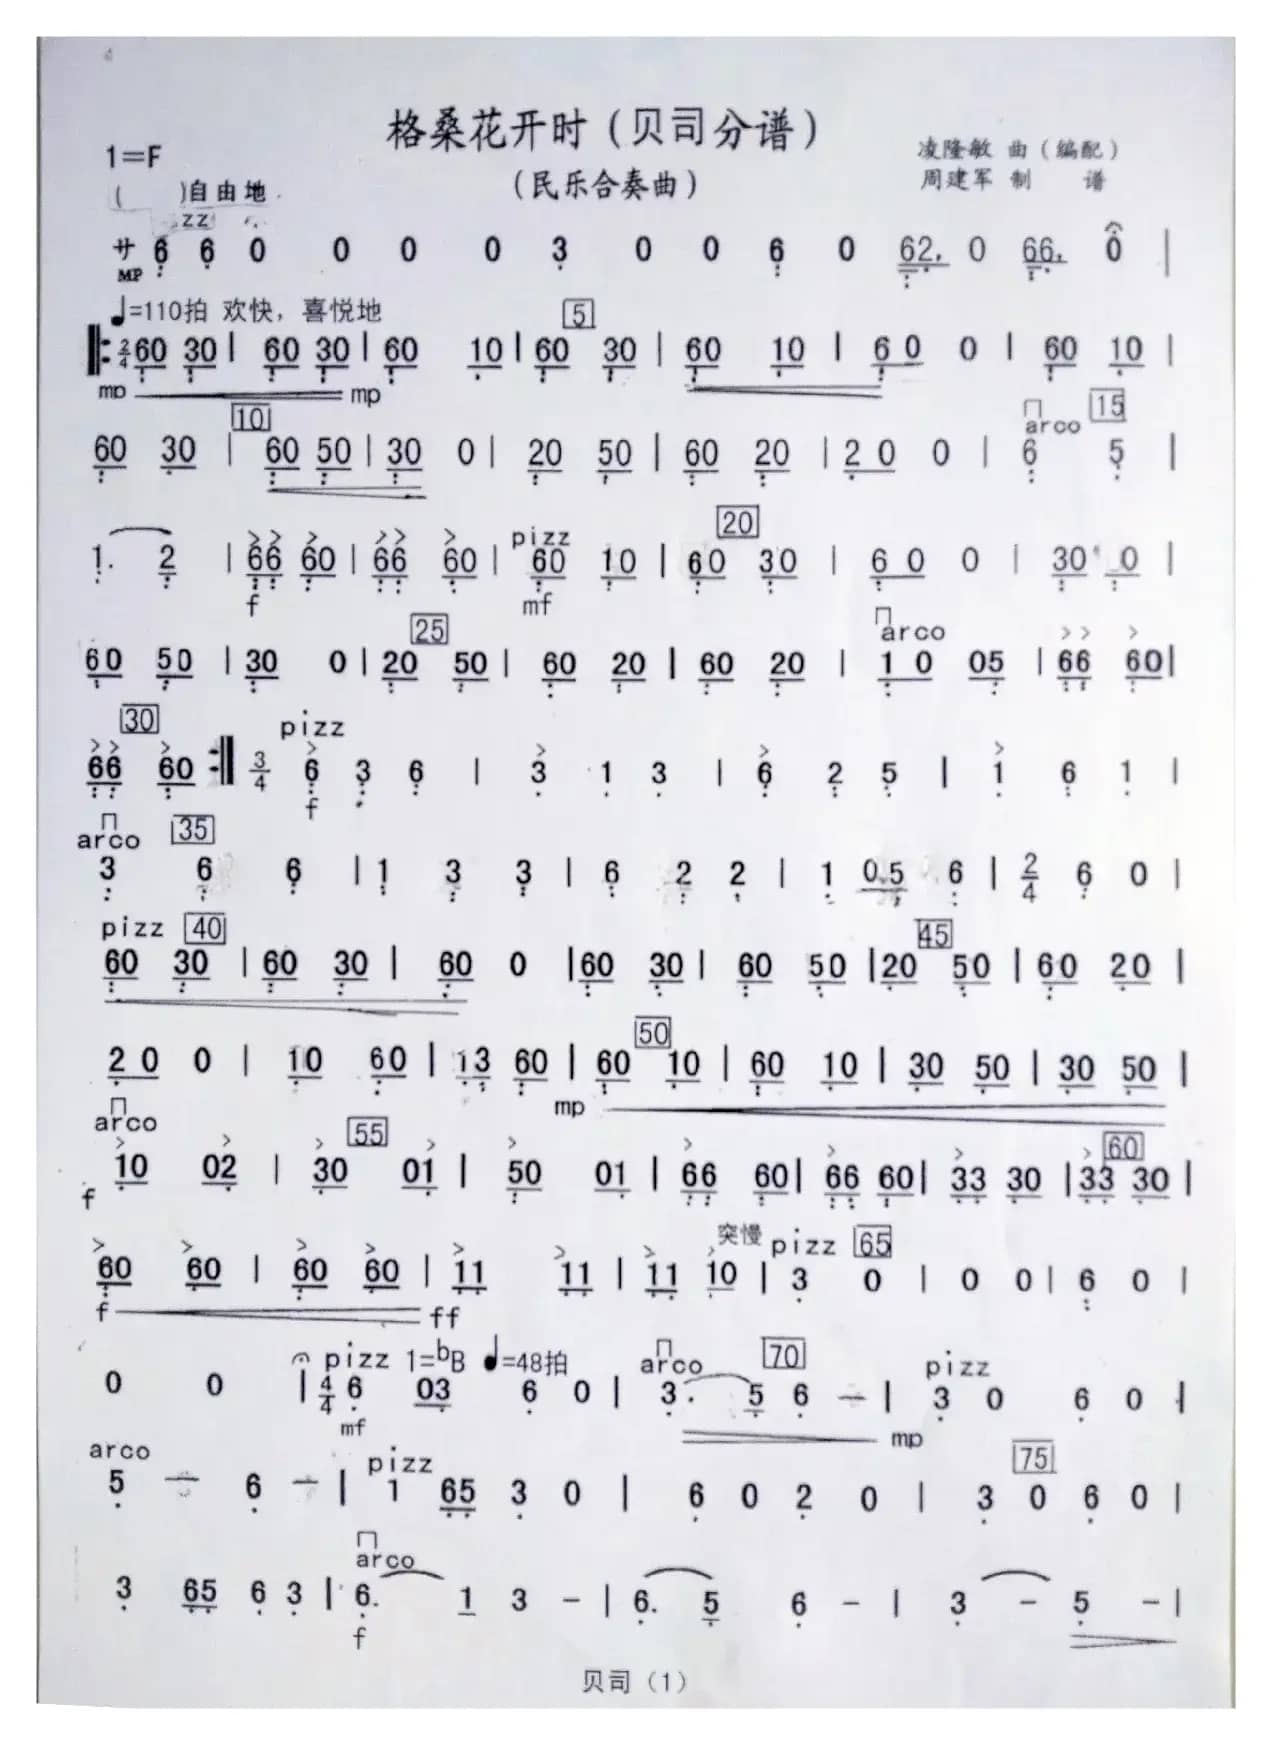 格桑花开时（贝司分谱）
1=F
凌隆敏 曲（编配）
（民乐合奏曲）
周建军 制 谱
( )自由地
zz
サ 6 6 0 0 0 0 3 0 0 6 0 62. 0 66. 0 |
MP
♩=110拍 欢快，喜悦地 5
‖: 2/4 60 30 | 60 30 | 60 10 | 60 30 | 60 10 | 60 0 | 60 10 |
mp mp
10 arco 15
60 30 | 60 50 | 30 0 | 20 50 | 60 20 | 20 0 | 6 5 |
pizz 20
1. 2 | 66 60 | 66 60 | 60 10 | 60 30 | 60 0 | 30 0 |
f mf
25 arco
60 50 | 30 0 | 20 50 | 60 20 | 60 20 | 10 05 | 66 60 |
30 pizz
66 60 :‖ 3/4 6 3 6 | 3 1 3 | 6 2 5 | 1 6 1 |
f
arco 35
3 6 6 | 1 3 3 | 6 2 2 | 1 05 6 | 2/4 6 0 |
pizz 40 45
60 30 | 60 30 | 60 0 | 60 30 | 60 50 | 20 50 | 60 20 |
50
20 0 | 10 60 | 13 60 | 60 10 | 60 10 | 30 50 | 30 50 |
mp
arco 55 60
10 02 | 30 01 | 50 01 | 66 60 | 66 60 | 33 30 | 33 30 |
f
突慢 pizz 65
60 60 | 60 60 | 11 11 | 11 10 | 3 0 | 0 0 | 6 0 |
f ff
pizz 1=bB ♩=48拍 arco 70 pizz
0 0 | 4/4 6 03 6 0 | 3. 5 6 - | 3 0 6 0 |
mf mp
arco pizz 75
5 - 6 - | 1 65 3 0 | 6 0 2 0 | 3 0 6 0 |
arco
3 65 6 3 | 6. 1 3 - | 6. 5 6 - | 3 - 5 - |
f
贝司（1）